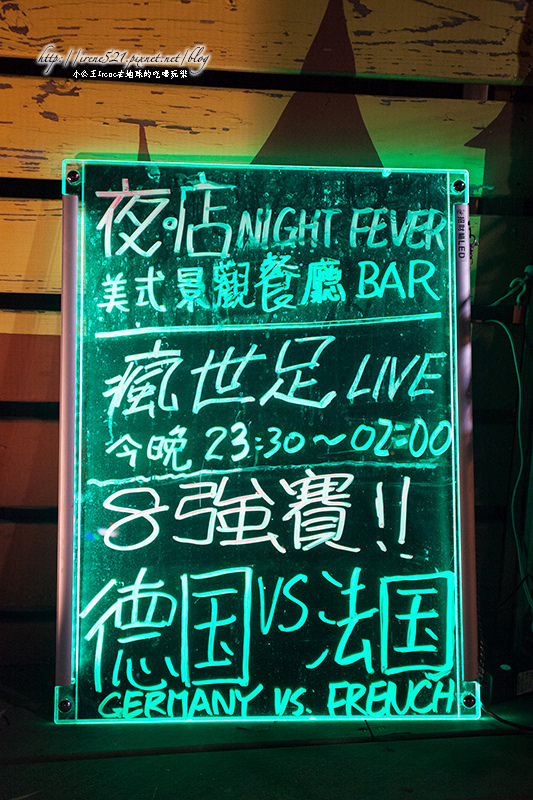 http://irene521.pixnet.net/blog
小公主Irene在地球的吃喝玩樂
夜·店 NIGHT FEVER
美式景觀餐廳 BAR
瘋世足 LIVE
今晚 23:30~02:00
8強賽!!
德国 VS 法国
GERMANY VS. FRENCH